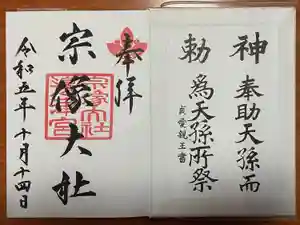 神勅
奉助天孫而
為天孫所祭
貞愛親王書
奉拝
宗像大社
令和五年十月十四日
宗像大社